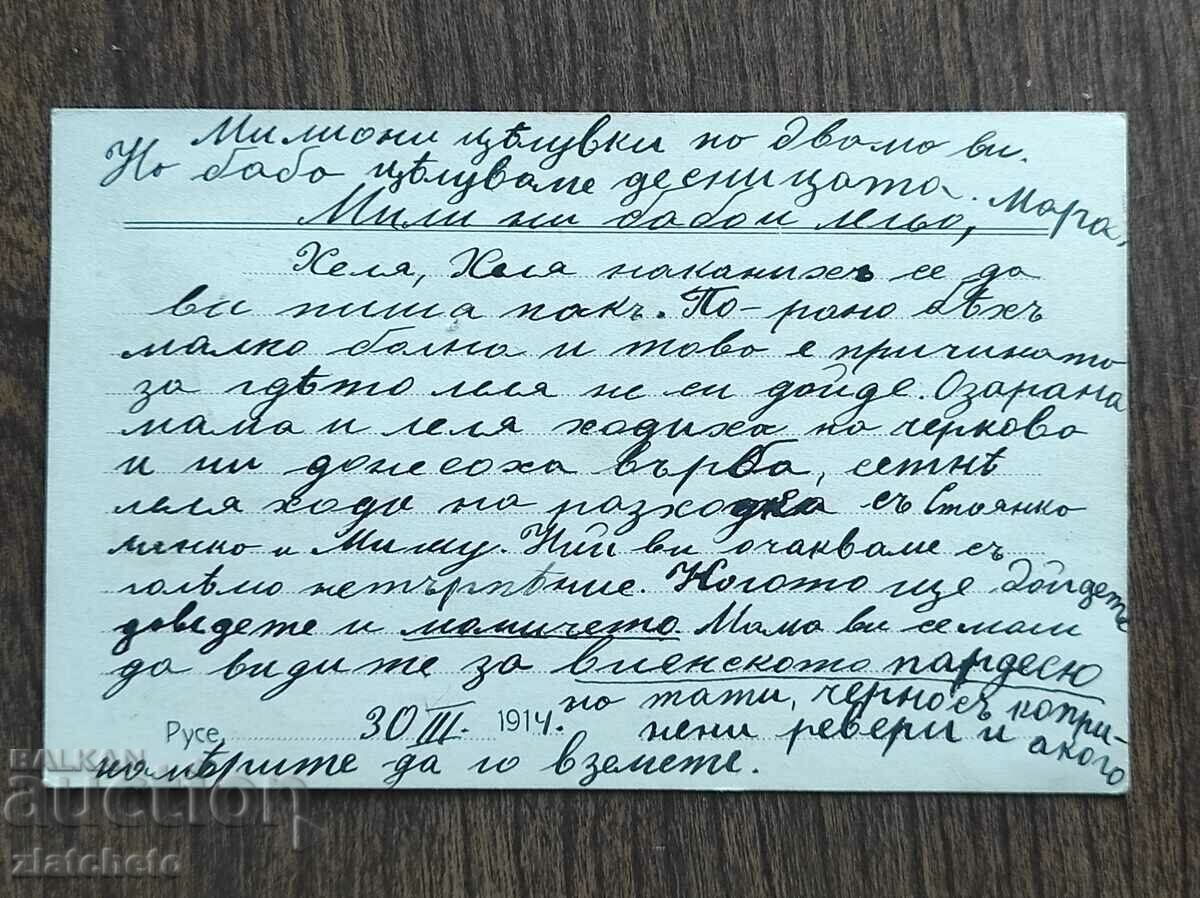 Милиони цѣлувки на двама ви.
На баба цѣлуваме десницата. Мара.
Мили ни бабаи лельо,
Хеля, Хеля наканихъ се да
ви пиша пакъ. По-рано бѣхъ
малко болна и това е причината
за гдѣто леля не си дойде. Озарана
мама и леля ходиха на черкова
и ни донесоха върба, сетнѣ
леля ходи на разходка съ Стоянко
и Мимӳ. Ний ви очакваме съ
голѣмо нетърпѣние. Когато ще дойдете
доведете и момичето. Мама ви се моли
да видите за виенското пардесю
на тати, черно съ копри-
нени ревери и ако го
Русе, 30 III. 1914.
намѣрите да го вземете.
BALKAN
auction
zlatcheto